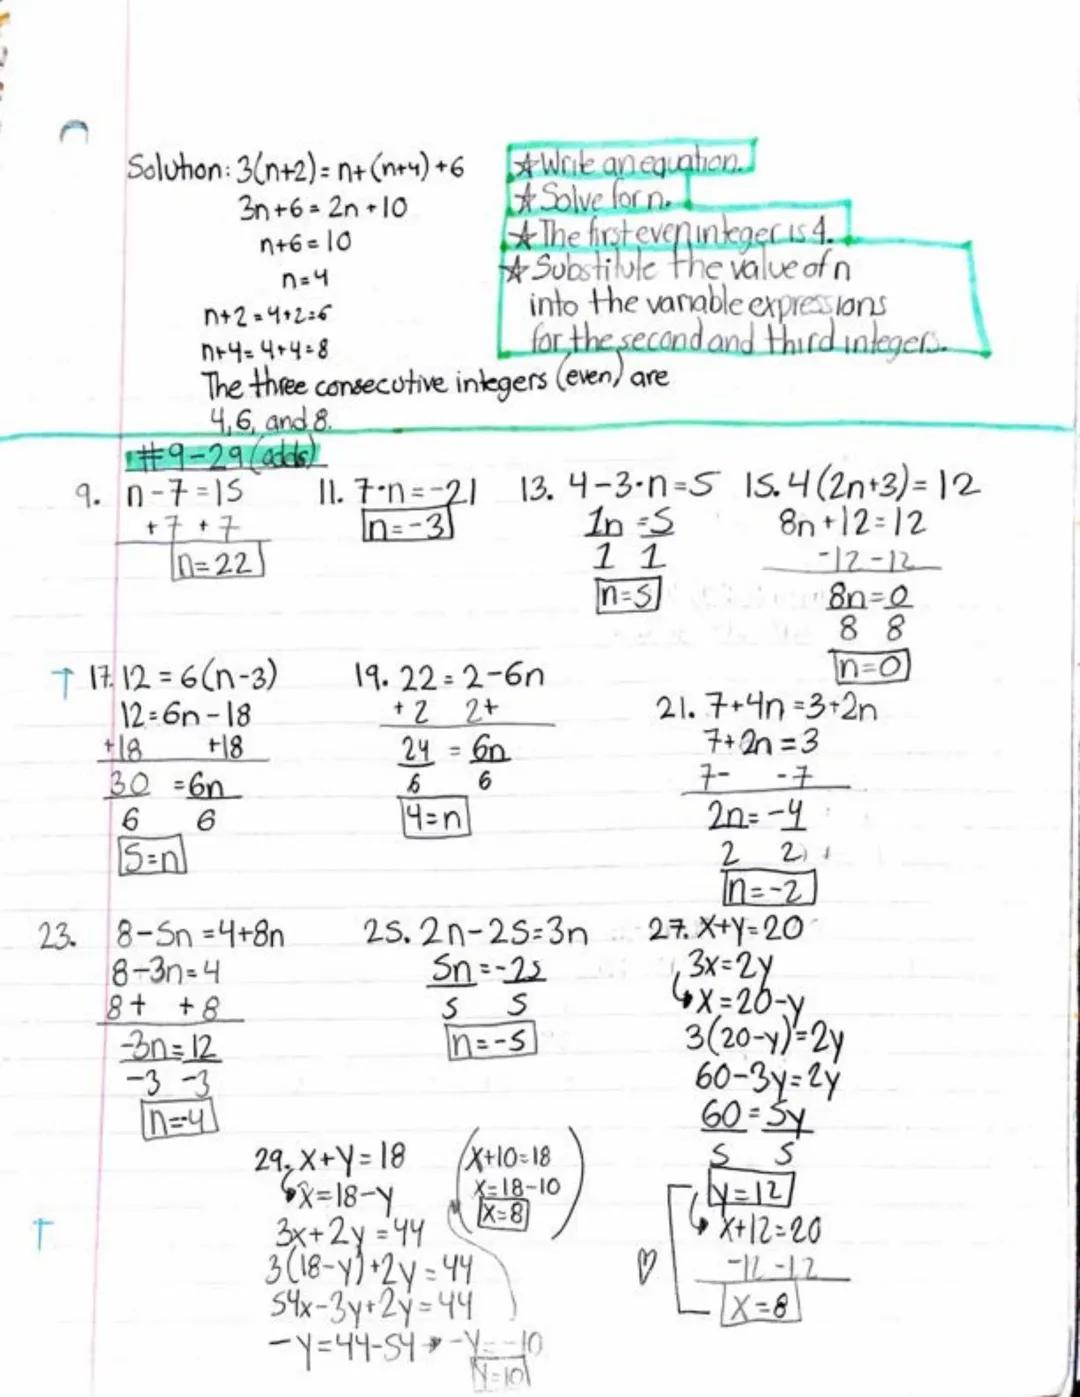 Solution: 3(n+2) = n+(n+4)+6
3n+6 = 2n+10
n+6 = 10
n=4
n+2=4+2=6
n+4=4+4=8
The three consecutive integers (even) are
4, 6, and 8.
☆ Write an equation.
☆ Solve for n.
☆ The first even integer is 4.
☆ Substitute the value of n
into the variable expressions
for the second and third integers.
#9-29 (odds)
9. n-7=15
+7 +7
n=22
11. 7·n=-21
n=-3
13. 4-3·n=5
1n =5
1 1
n=5
15. 4(2n+3)=12
8n+12=12
-12 -12
8n=0
8 8
n=0
17. 12=6(n-3)
12=6n-18
+18 +18
30 =6n
6 6
5=n
19. 22=2-6n
+2 2+
24 = 6n
6 6
4=n
21. 7+4n=3+2n
7+2n=3
7- -7
2n=-4
2 2
n=-2
23. 8-5n=4+8n
8-3n=4
8+ +8
-3n=12
-3 -3
n=-4
25. 2n-25=3n
5n=-25
5 5
n=-5
27. x+y=20
3x=2y
x=20-y
3(20-y)=2y
60-3y=2y
60=5y
5 5
y=12
x+12=20
-12 -12
x=8
29. x+y=18
x=18-y
3x+2y=44
3(18-y)+2y=44
54x-3y+2y=44
-y=44-54 → -y=-10
y=10
x+10=18
x=18-10
x=8